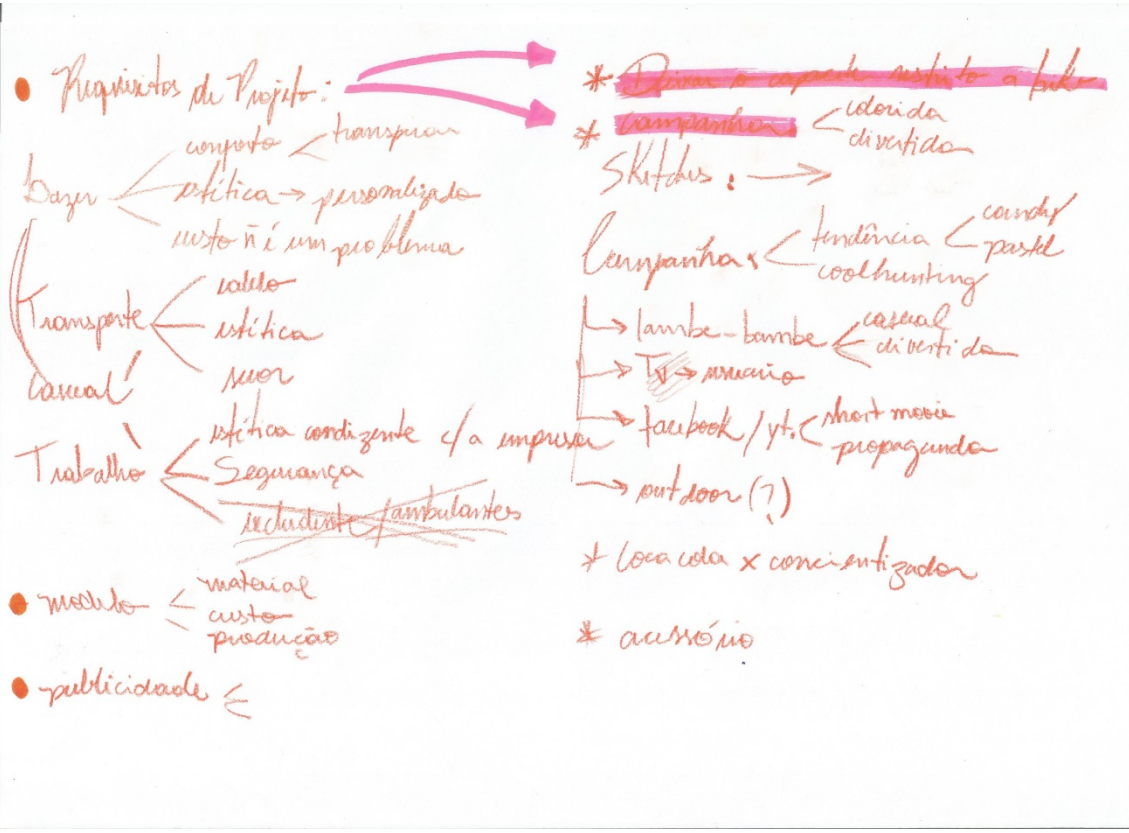 Requisitos de Projeto:
Lazer
conforto
transpirar
estética → personalizado
custo ñ é um problema
Transporte
cabelo
estética
suor
Casual
Trabalho
estética condizente c/ a empresa
Segurança
/ambulantes
modelo
material
custo
produção
publicidade
* Deixar o capacete restrito a bike
* campanha
colorida
divertida
Sketches: →
Campanha:
tendência
candy
pastel
coolhunting
→ lambe-lambe
casual
divertida
→ TV → usuário
→ facebook / yt.
short movie
propaganda
→ outdoor (?)
* Coca cola x concientizador
* acessório